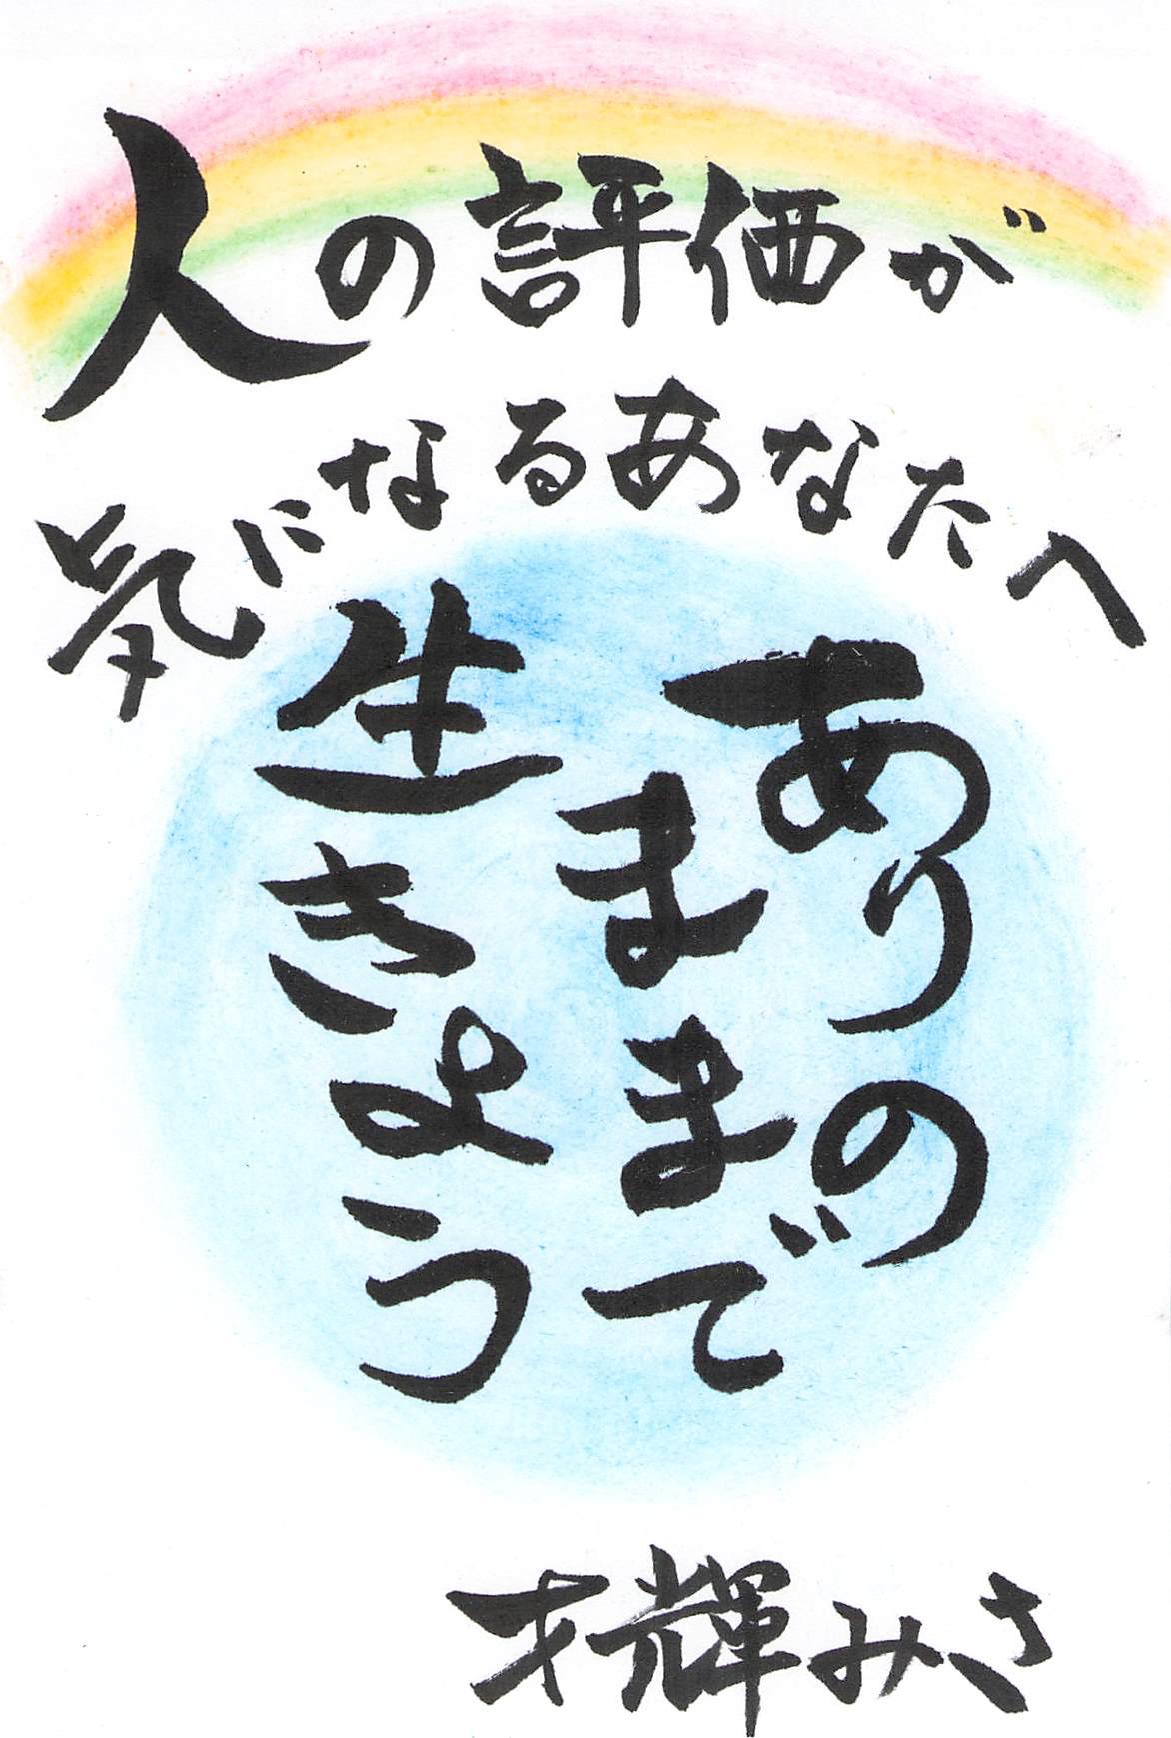 人の評価が
気になるあなたへ
ありの
ままで
生きよう
才輝みさ